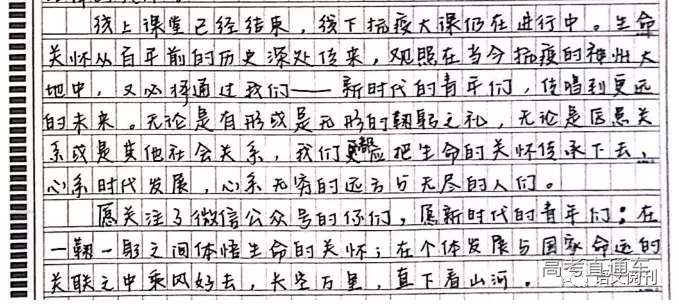 线上课堂已经结束，线下抗疫大课仍在进行中。生命
关怀从百年前的历史深处传来，观照在当今抗疫的神州大
地中，又必将通过我们——新时代的青年们，传唱到更远
的未来。无论是有形或是无形的鞠躬之礼，无论是医患关
系或是其他社会关系，我们更都应把生命的关怀传承下去，
心系时代发展，心系无穷的远方与无尽的人们。
愿关注了微信公众号的你们，愿新时代的青年们：在
一鞠一躬之间体悟生命的关怀；在个体发展与国家命运的
关联之中乘风好去，长空万里，直下看山河。
高考直通车
语文阅刊